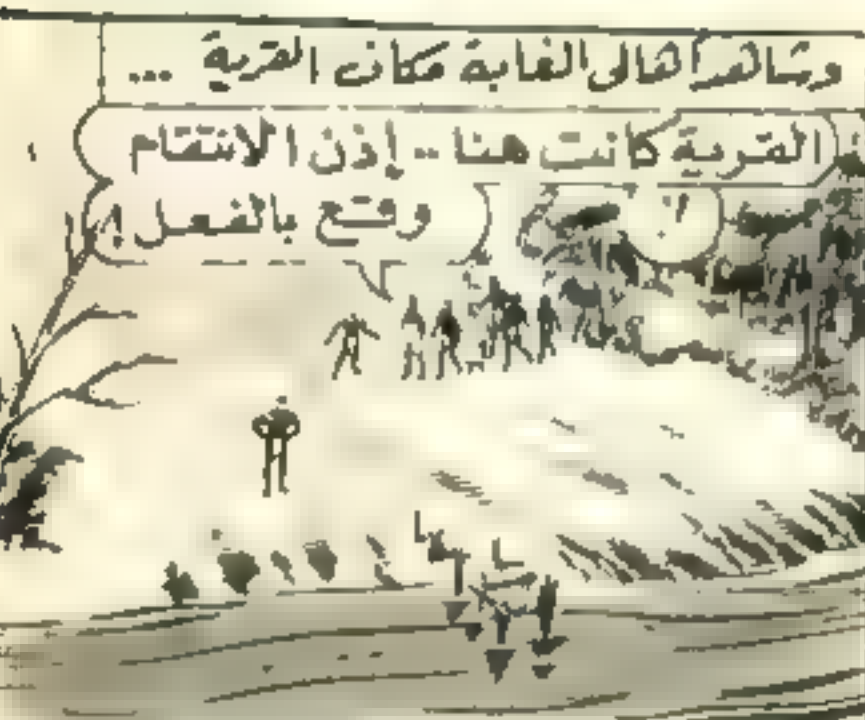 وشاهد أهالى الغابة مكان القرية ...
القرية كانت هنا .. إذن الانتقام
وقع بالفعل !